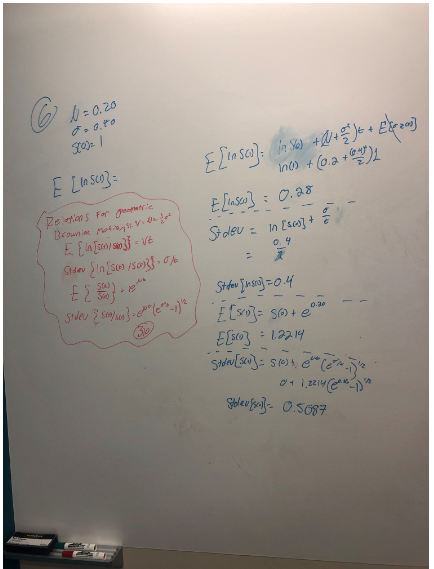 6
μ = 0.20
σ = 0.40
S(0) = 1
E [ln S(1)] =
Relations for geometric
Brownian Motion
E {ln[S(t)/S(0)]} = vt
Stdev {ln[S(t)/S(0)]} = σ√t
E { S(t)/S(0) } = e^μt
Stdev { S(t)/S(0) } = e^μt (e^σ²t - 1)^1/2
310
E [ln S(1)] = ln S(0) + (μ + σ²/2) t + E [σ z(t)]
ln(1) + (0.2 + (0.4)²/2) 1
E[ln S(1)] = 0.28
Stdev = ln [S(0)] + σ/t
= 0.4/1
Stdev[ln S(1)] = 0.4
E [S(1)] = S(0) + e^0.20
E[S(1)] = 1.2214
Stdev[S(1)] = S(0) + e^μt (e^σ²t - 1)^1/2
0 + 1.2214 (e^0.16 - 1)^1/2
Stdev[S(1)] = 0.5087